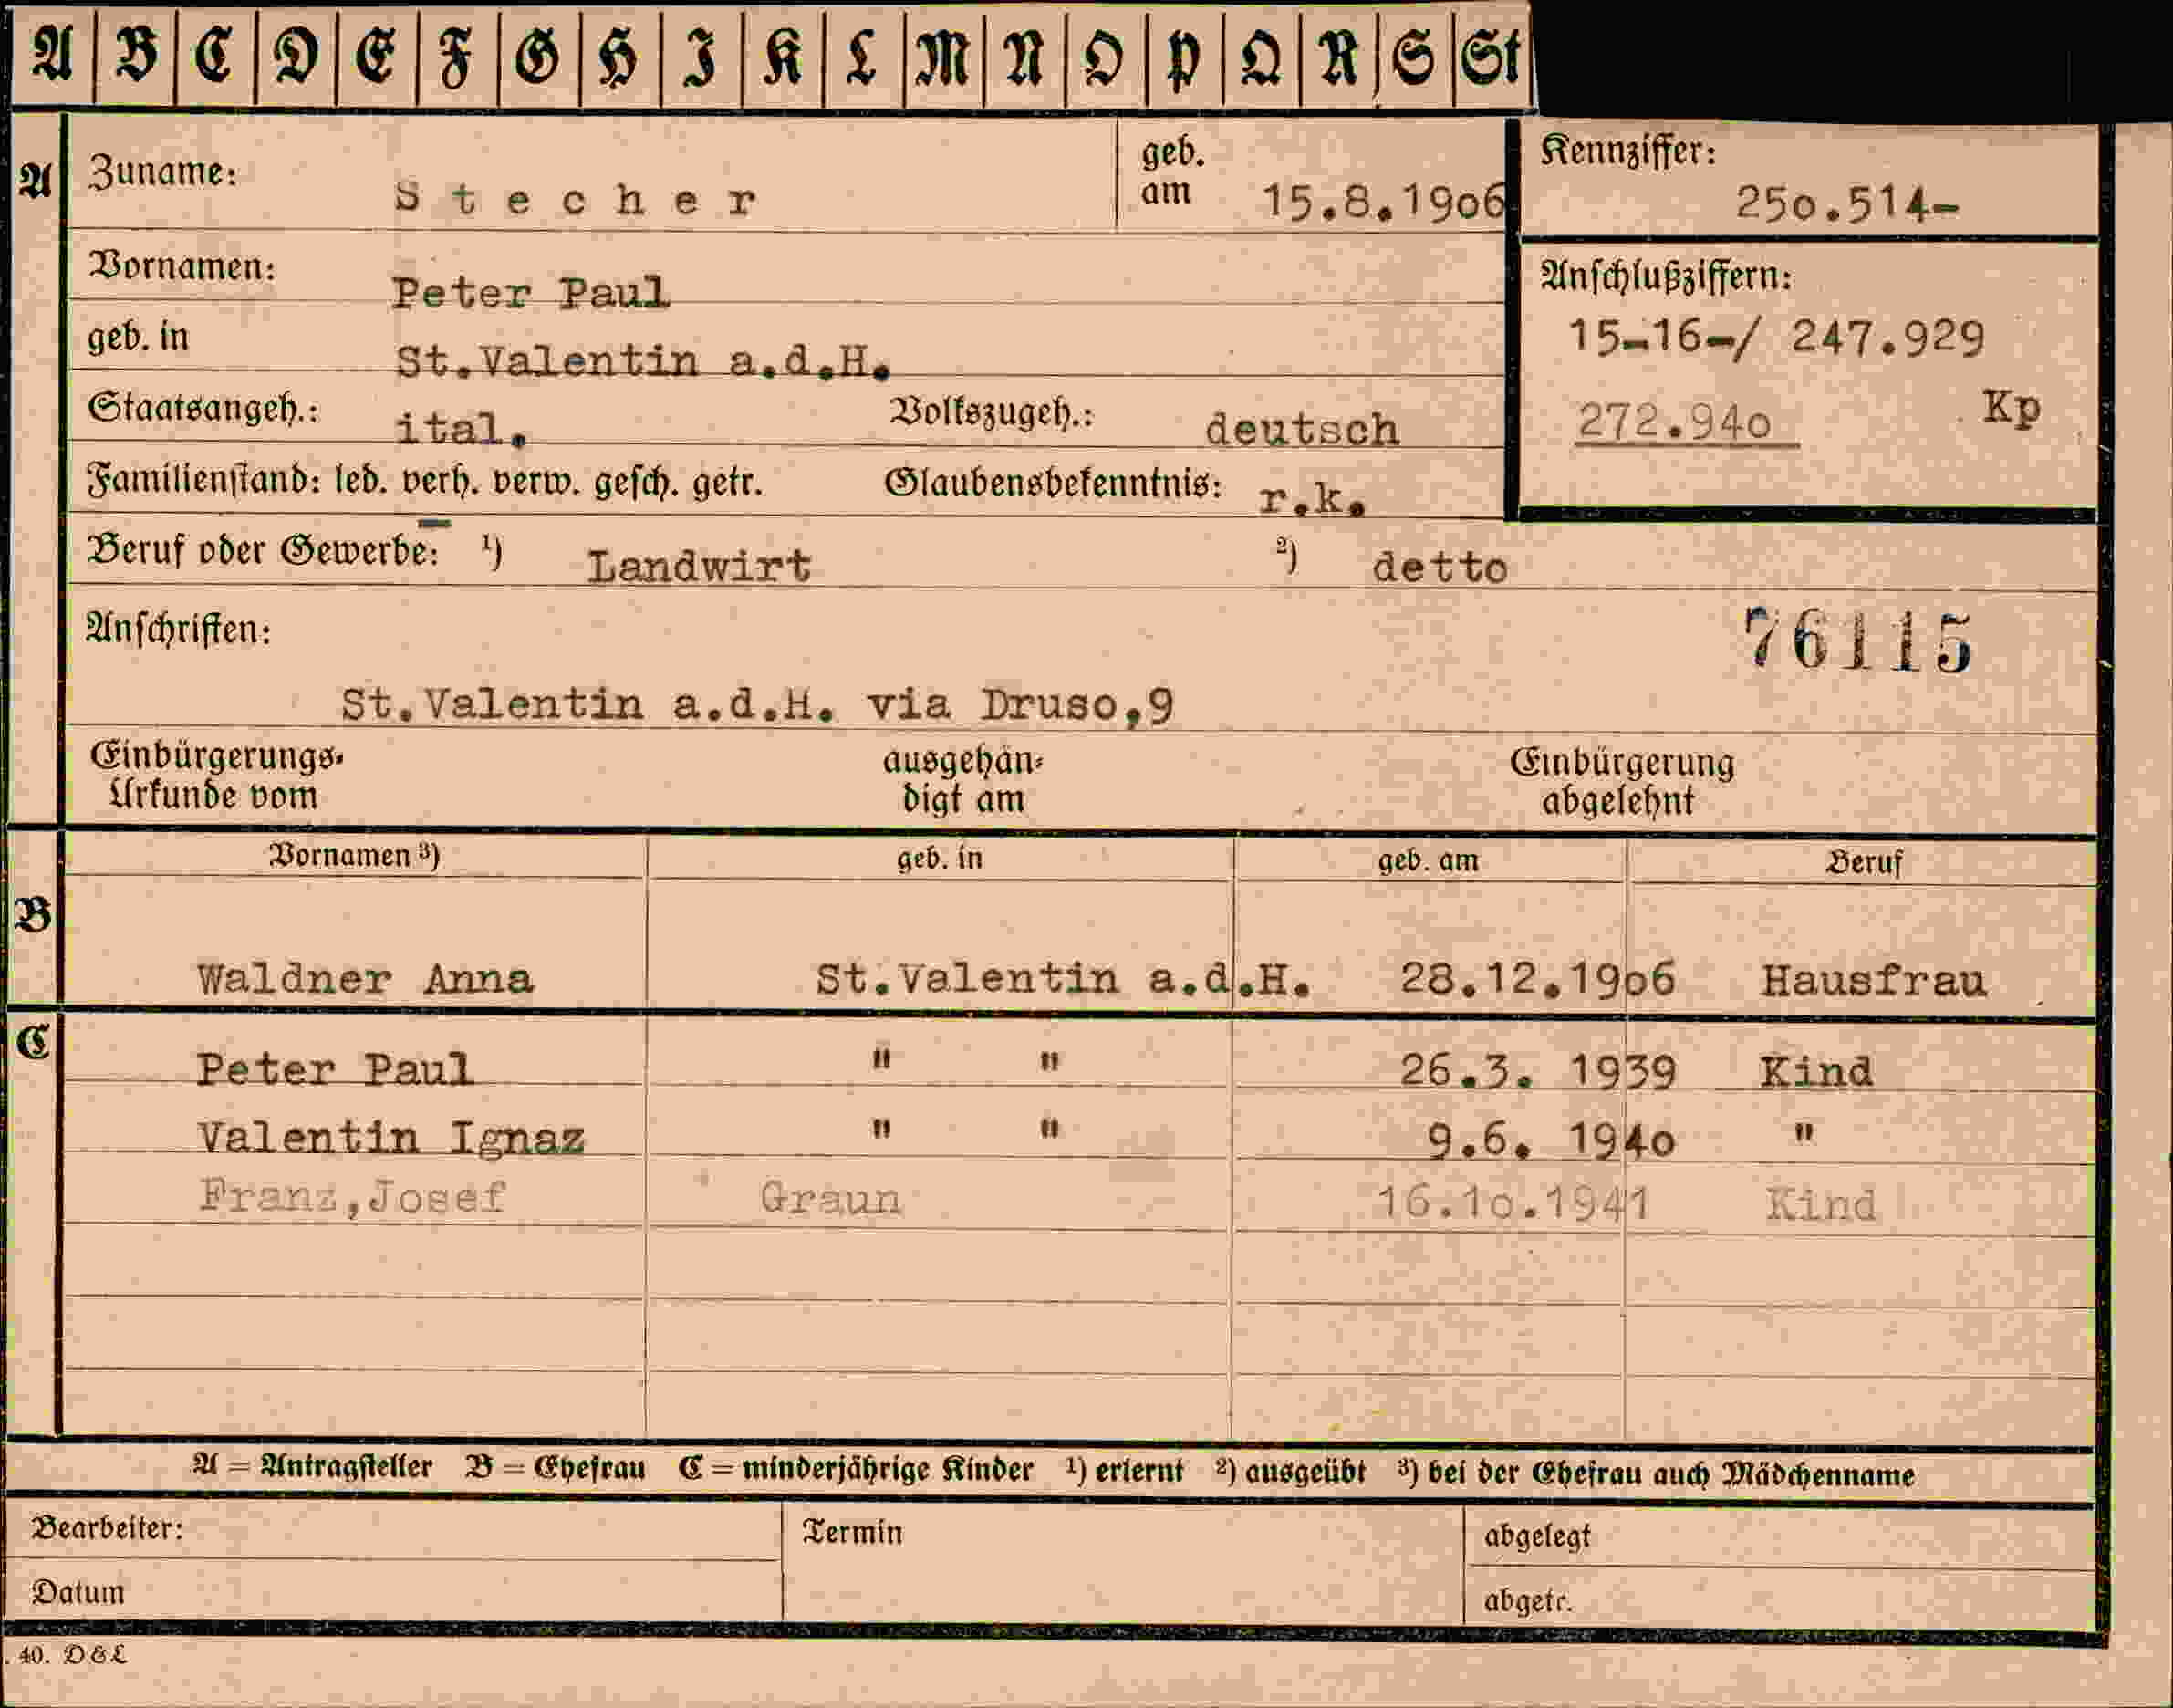 A B C D E F G H I K L M N O P Q R S St
A Zuname: Stecher geb. am 15.8.1906
Kennziffer: 250.514-
Vornamen: Peter Paul
Anschlußziffern:
15-16-/ 247.929
272.940 Kp
geb. in St.Valentin a.d.H.
Staatsangeh.: ital. Volkszugeh.: deutsch
Familienstand: led. verh. verw. gesch. getr. Glaubensbekenntnis: r.k.
Beruf oder Gewerbe: ¹) Landwirt ²) detto
Anschriften:
76115
St.Valentin a.d.H. via Druso,9
Einbürgerungs- ausgehän- Einbürgerung
Urkunde vom digt am abgelehnt
Vornamen ³) geb. in geb. am Beruf
B
Waldner Anna St.Valentin a.d.H. 28.12.1906 Hausfrau
C
Peter Paul " " 26.3. 1939 Kind
Valentin Ignaz " " 9.6. 1940 "
Franz,Josef Graun 16.10.1941 Kind
A = Antragsteller B = Ehefrau C = minderjährige Kinder ¹) erlernt ²) ausgeübt ³) bei der Ehefrau auch Mädchenname
Bearbeiter: Termin abgelegt
Datum abgetr.
. 40. D & L